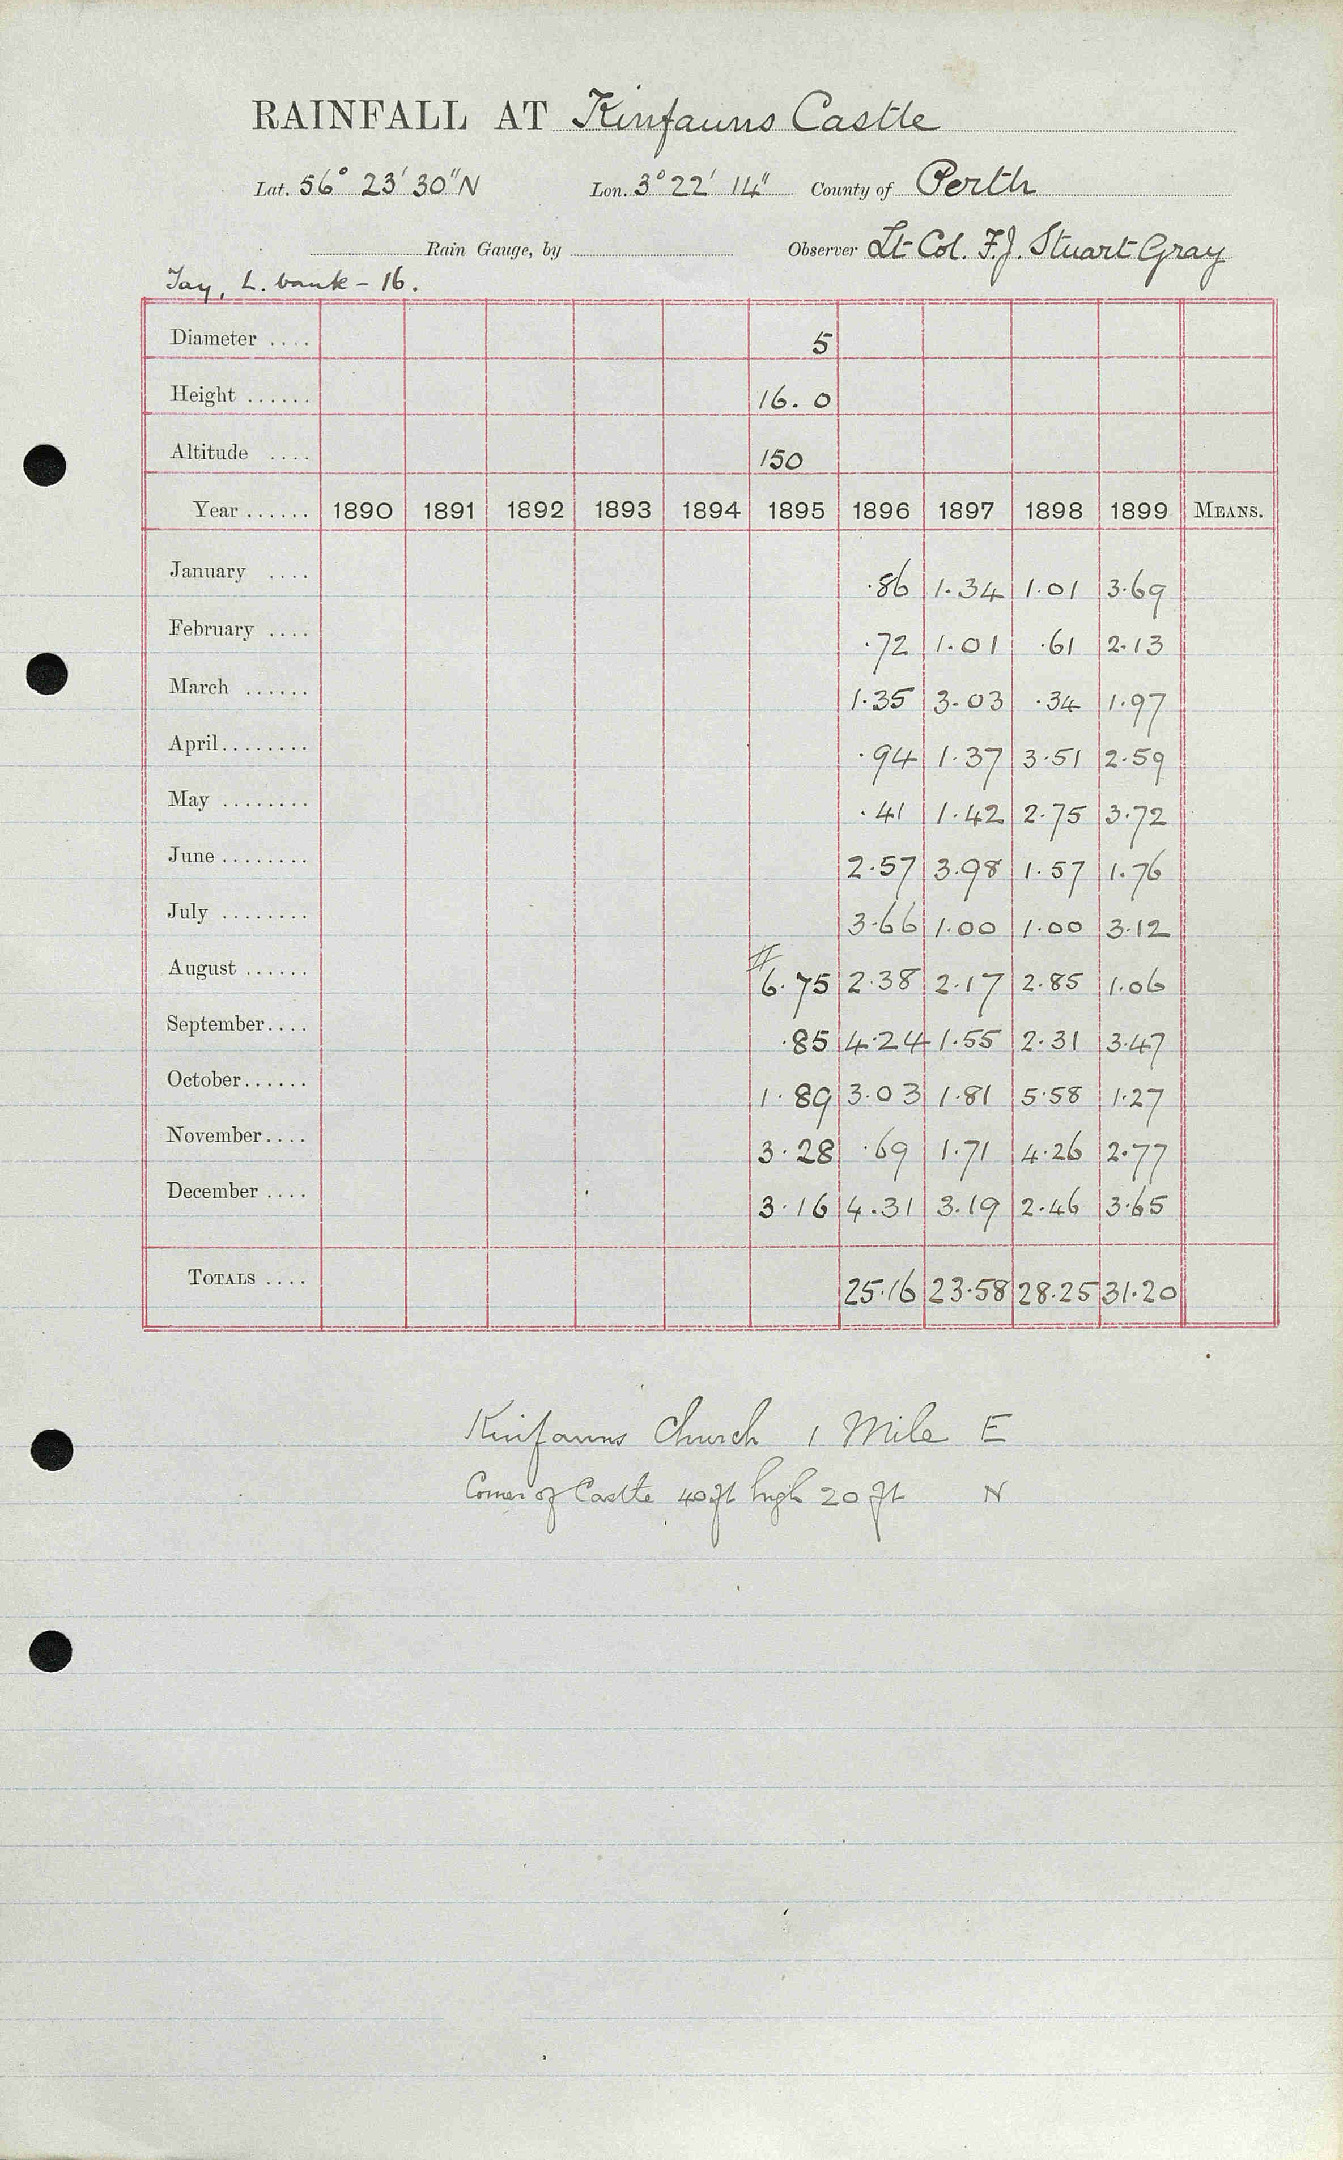 RAINFALL AT Kinfauns Castle
Lat. 56° 23' 30" N Lon. 3° 22' 14" County of Perth
Rain Gauge, by Observer Lt Col. F.J. Stuart Gray
Tay, L. bank - 16.
Diameter .... 5
Height ...... 16. 0
Altitude .... 150
Year ...... 1890 1891 1892 1893 1894 1895 1896 1897 1898 1899 MEANS.
January .... .86 1.34 1.01 3.69
February .... .72 1.01 .61 2.13
March ...... 1.35 3.03 .34 1.97
April........ .94 1.37 3.51 2.59
May ........ .41 1.42 2.75 3.72
June ........ 2.57 3.98 1.57 1.76
July ........ 3.66 1.00 1.00 3.12
August ...... 6.75 2.38 2.17 2.85 1.06
September.... .85 4.24 1.55 2.31 3.47
October...... 1.89 3.03 1.81 5.58 1.27
November.... 3.28 .69 1.71 4.26 2.77
December .... 3.16 4.31 3.19 2.46 3.65
TOTALS .... 25.16 23.58 28.25 31.20
Kinfauns Church 1 Mile E
Corner of Castle 40 ft high 20 ft N